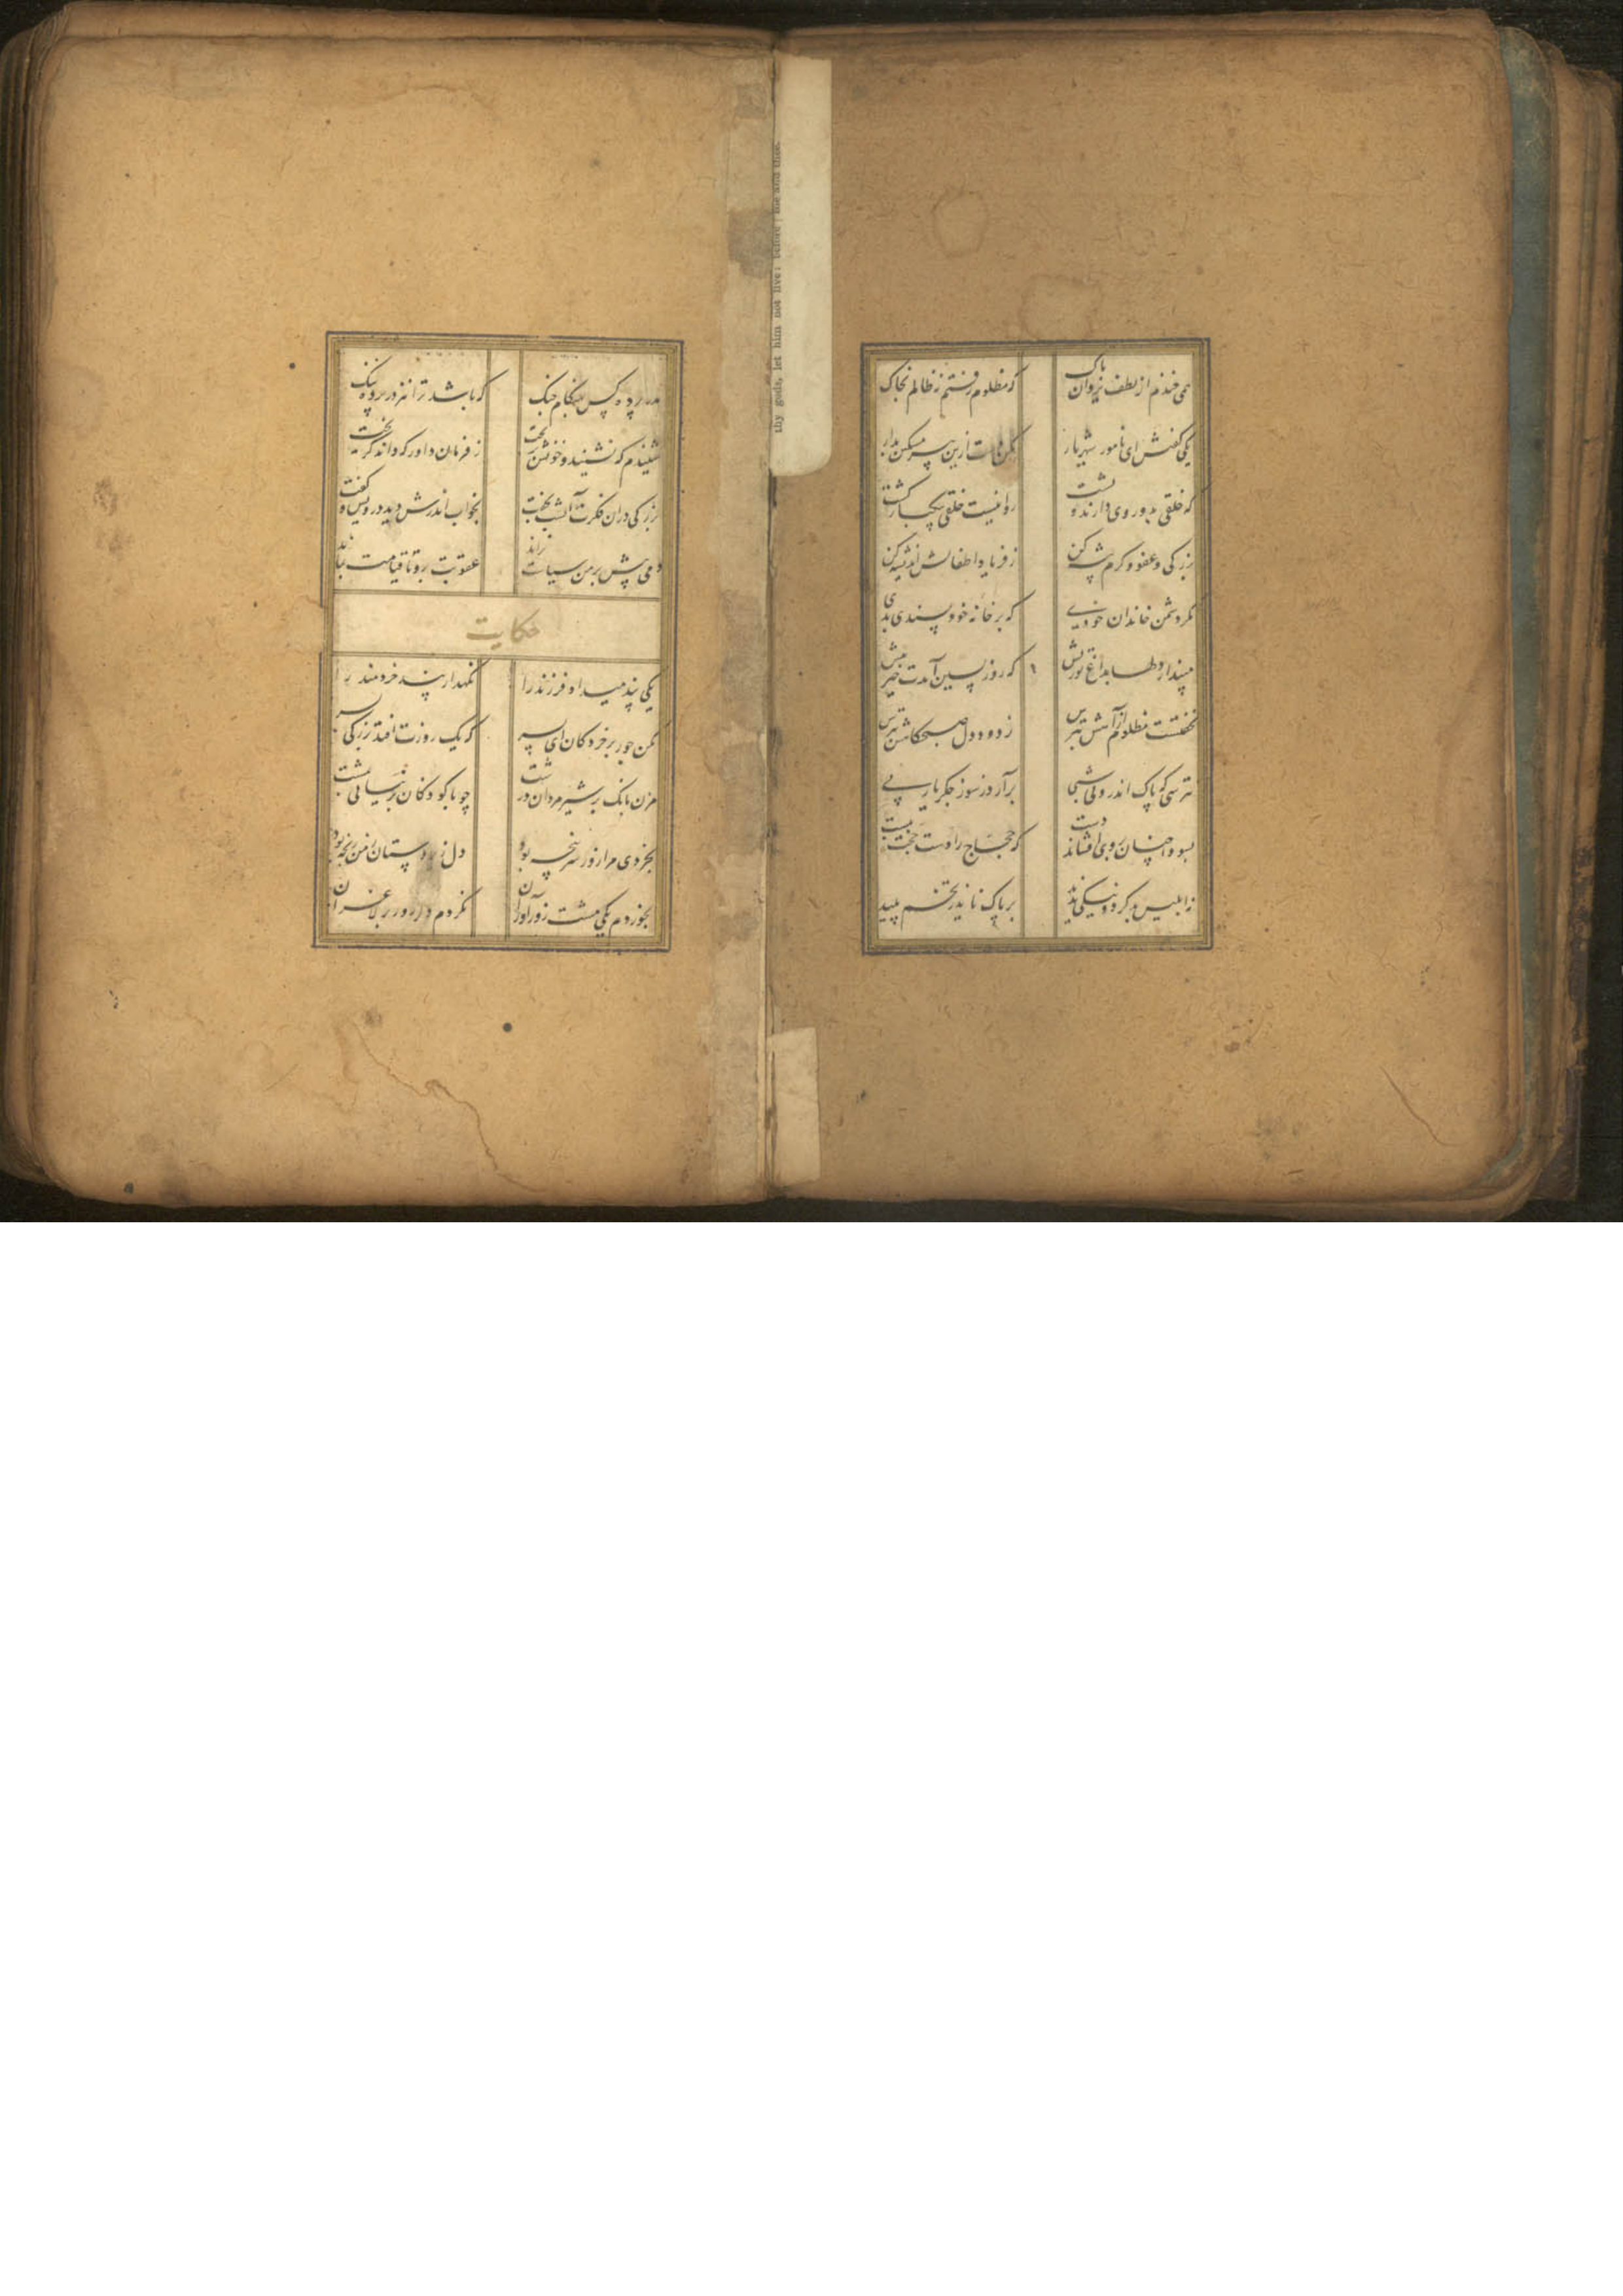 همی خندم از لطف یزدان پاک که مظلوم رفتم نه ظالم بخاک
یکی گفتش ای نامور شهریار مکن دست ازین پیر مسکین بدار
که خلقی بدو روی دارند و پشت روا نیست خلقی بیکبار کشت
بزرکی و عفو و کرم پیشه کن ز فردای اطفالش اندیشه کن
مکر دشمن خاندان خودی که بر خانه خود پسندی بدی
مپندار دلها بداغ تو ریش که روز پسین آیدت خیر پیش
نخفتست مظلوم از آهش بترس ز دود دل صبحکاهش بترس
نترسی که پاک اندرونی شبی برآرد ز سوز جکر یا ربی
روی افشاند دست که حجاج را دست حجت ببست
نه ابلیس بد کرد و نیکی ندید بر پاک ناید ز تخم پلید
thy gods, let him not live: before me and thee.
مدر پرده کس بهنکام جنک که باشد ترا نیز در پرده ننک
شنیدم که نشنید و خونش بریخت ز فرمان داور که داند کریخت
بزرکی دران فکرت آن شب بخفت بخواب اندرش دید درویش و کفت
دمی بیش بر من سیاست نراند عقوبت برو تا قیامت بماند
حکایت
یکی پند میداد فرزند را نکهدار پند خردمند را
مکن جور بر خردکان ای پسر که یک روزت افتد بزرکی بسر
مزن بانک بر شیرمردان درشت چو با کودکان بر نیایی بمشت
بخردی مرا زور سرپنجه بود دل زیردستان ز من رنجه بود
بخوردم یکی مشت زورآوران نکردم دکر زور بر لاغران